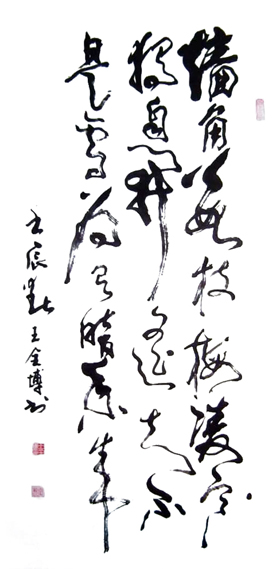 墙角数枝梅凌寒
独自开遥知不
是雪为有暗香来
壬辰 王金博书